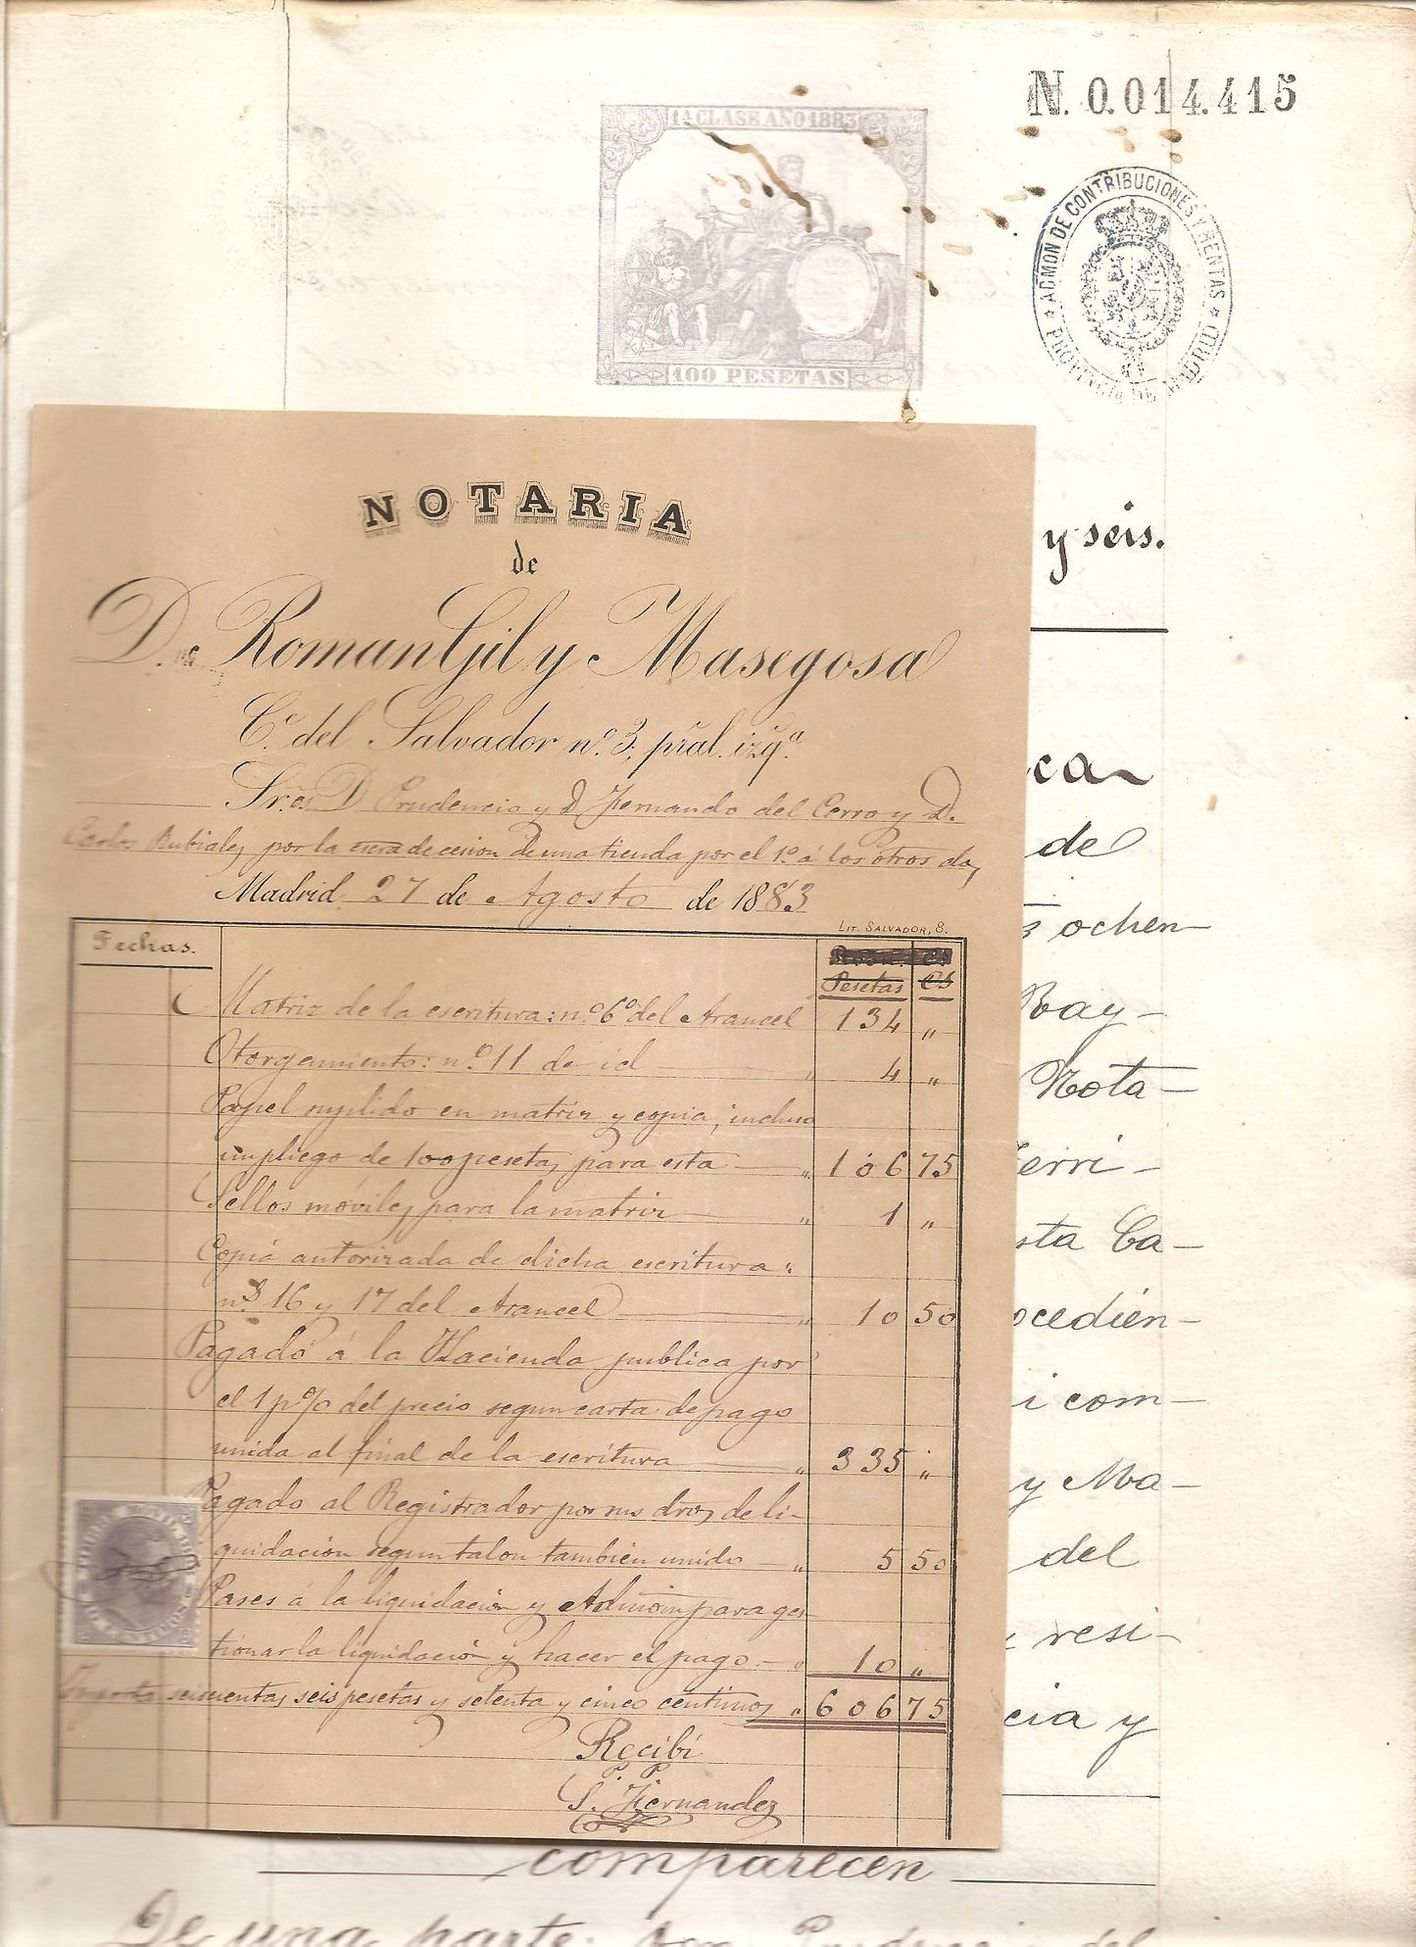 N. 0.014.415
1ª CLASE AÑO 1883
ADMON DE CONTRIBUCIONES Y RENTAS
PROVINCIA DE MADRID
100 PESETAS
NOTARIA
de
D. Roman Gil y Masegosa
C.e del Salvador nº. 3, pral. izqª.
Sr.es D Prudencio y D Fernando del Cerro y D.
Carlos Rubiales por la escra de cesion de una tienda por el 1º á los otros dos
Madrid 27 de Agosto de 1883
LIT. SALVADOR, 8.
Fechas.
Pesetas Cs
Matriz de la escritura: nº 6º del Arancel 134 "
Otorgamiento: nº 11 de id " 4 "
Papel suplido en matriz y copia, incluso
un pliego de 100 pesetas para esta " 106 75
Sellos moviles para la matriz " 1 "
Copia autorizada de dicha escritura:
nos 16 y 17 del Arancel " 10 50
Pagado á la Hacienda publica por
el 1 p% del precio segun carta de pago
unida al final de la escritura " 335 "
Pagado al Registrador por sus dros de li-
quidacion segun talon tambien unido " 5 50
Pases á la liquidación y Admon para ges-
tionar la liquidación y hacer el pago " 10 "
Importa seiscientas seis pesetas y setenta y cinco centimos " 606 75
Recibí
P. P.
S. Hernandez
y seis.
ca
de
ochen
Ray-
Nota-
erri-
sta Ca-
ocedien-
i com-
y Ma-
del
resi-
cia y
comparecen
De una parte: Don Prudencio del